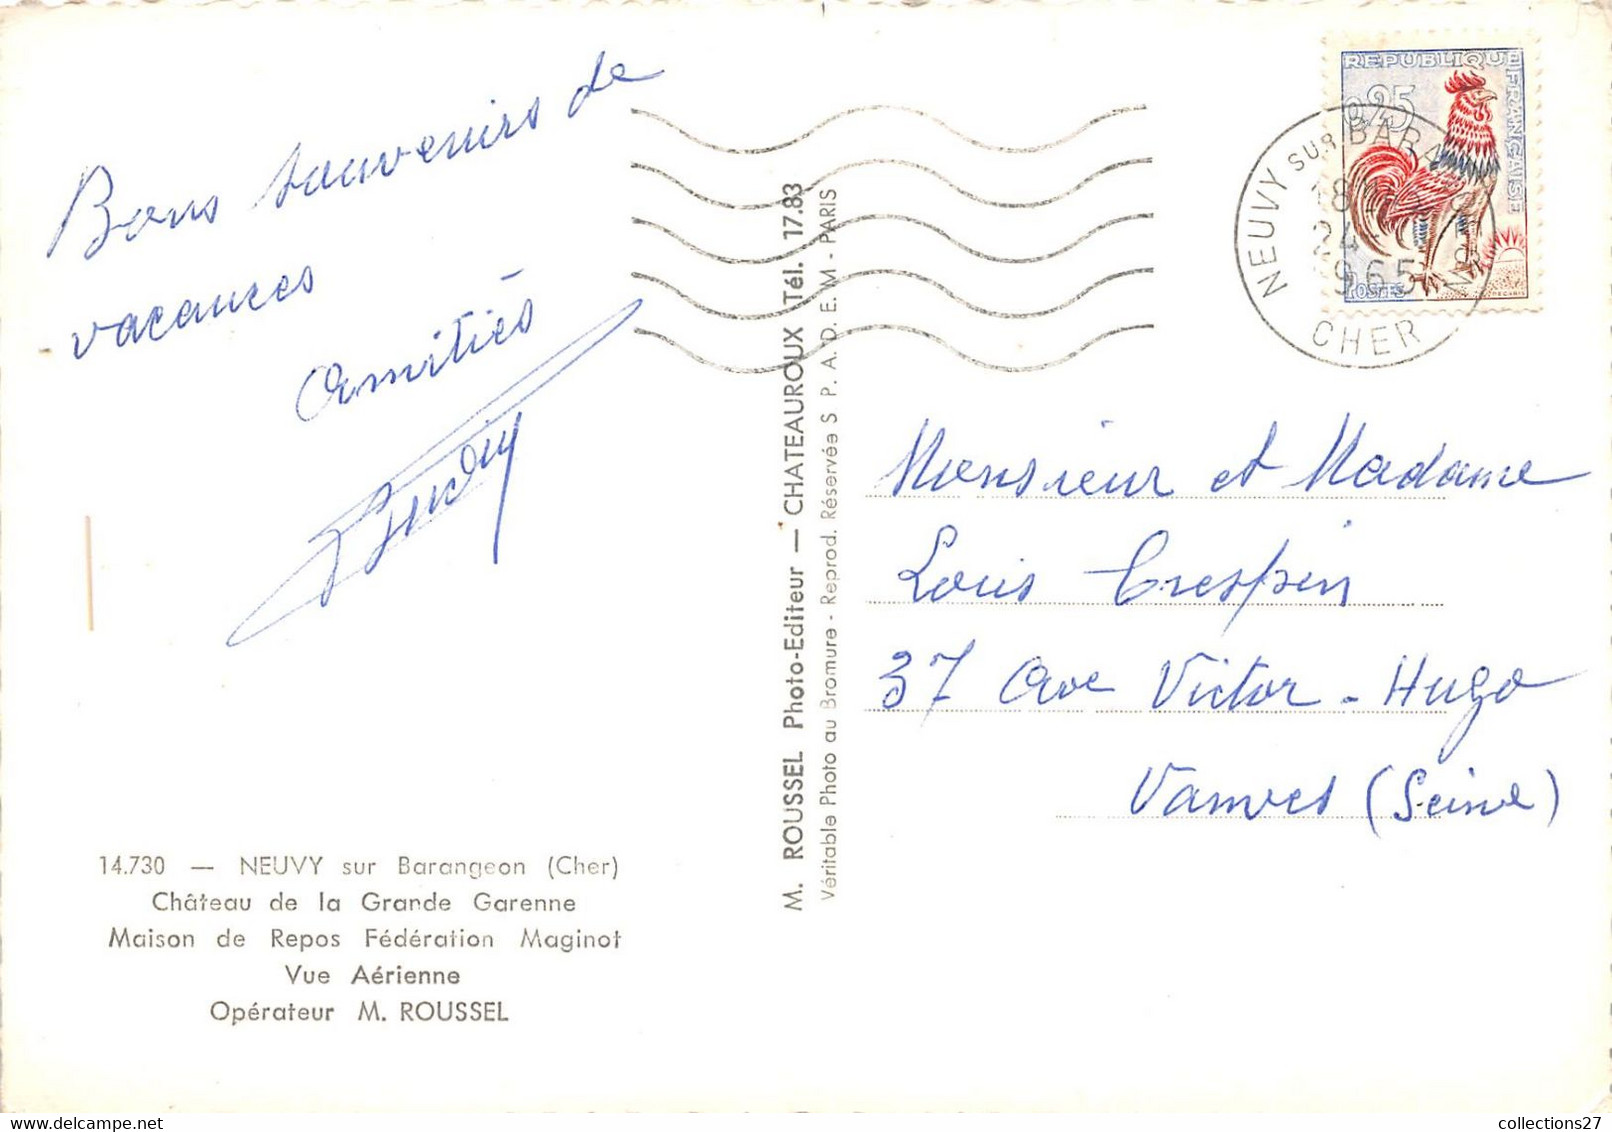 Bons souvenirs de
vacances
Amitiés
14.730 — NEUVY sur Barangeon (Cher)
Château de la Grande Garenne
Maison de Repos Fédération Maginot
Vue Aérienne
Opérateur M. ROUSSEL
M. ROUSSEL Photo-Editeur — CHATEAUROUX Tél. 17.83
Véritable Photo au Bromure - Reprod. Réservée S P. A. D. E. M - PARIS
REPUBLIQUE FRANÇAISE
0,25
POSTES
NEUVY SUR BARANGEON
18
24
1965
CHER
Monsieur et Madame
Louis Crespin
37 Ave Victor-Hugo
Vanves (Seine)
collections27